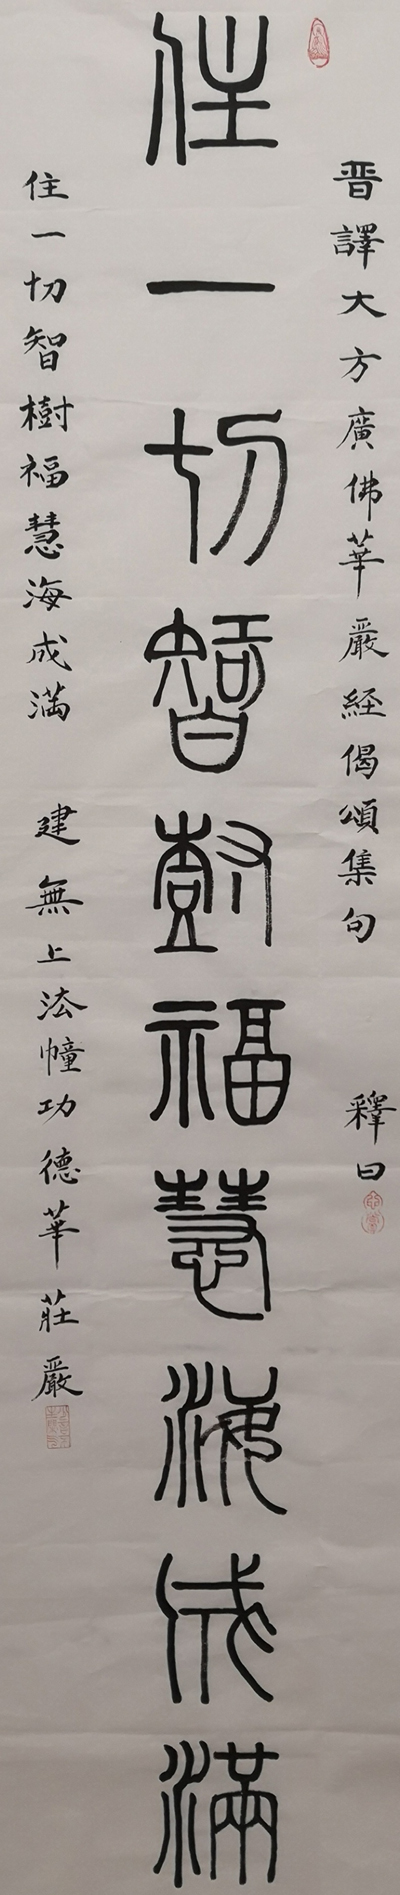 晋譯大方廣佛華嚴経偈頌集句　釋曰
住一切智樹福慧海成滿
住一切智樹福慧海成满　建無上法幢功德華莊嚴